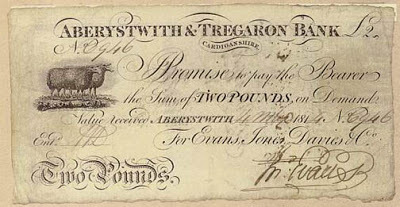 ABERYSTWITH & TREGARON BANK £2
CARDIGANSHIRE
No. 0946
I Promise to pay the Bearer
the Sum of TWO POUNDS, on Demand
Value received ABERYSTWITH 4 1814 No 0946
Entd. For Evans, Jones, Davies, & Co.
Two Pounds. Evans